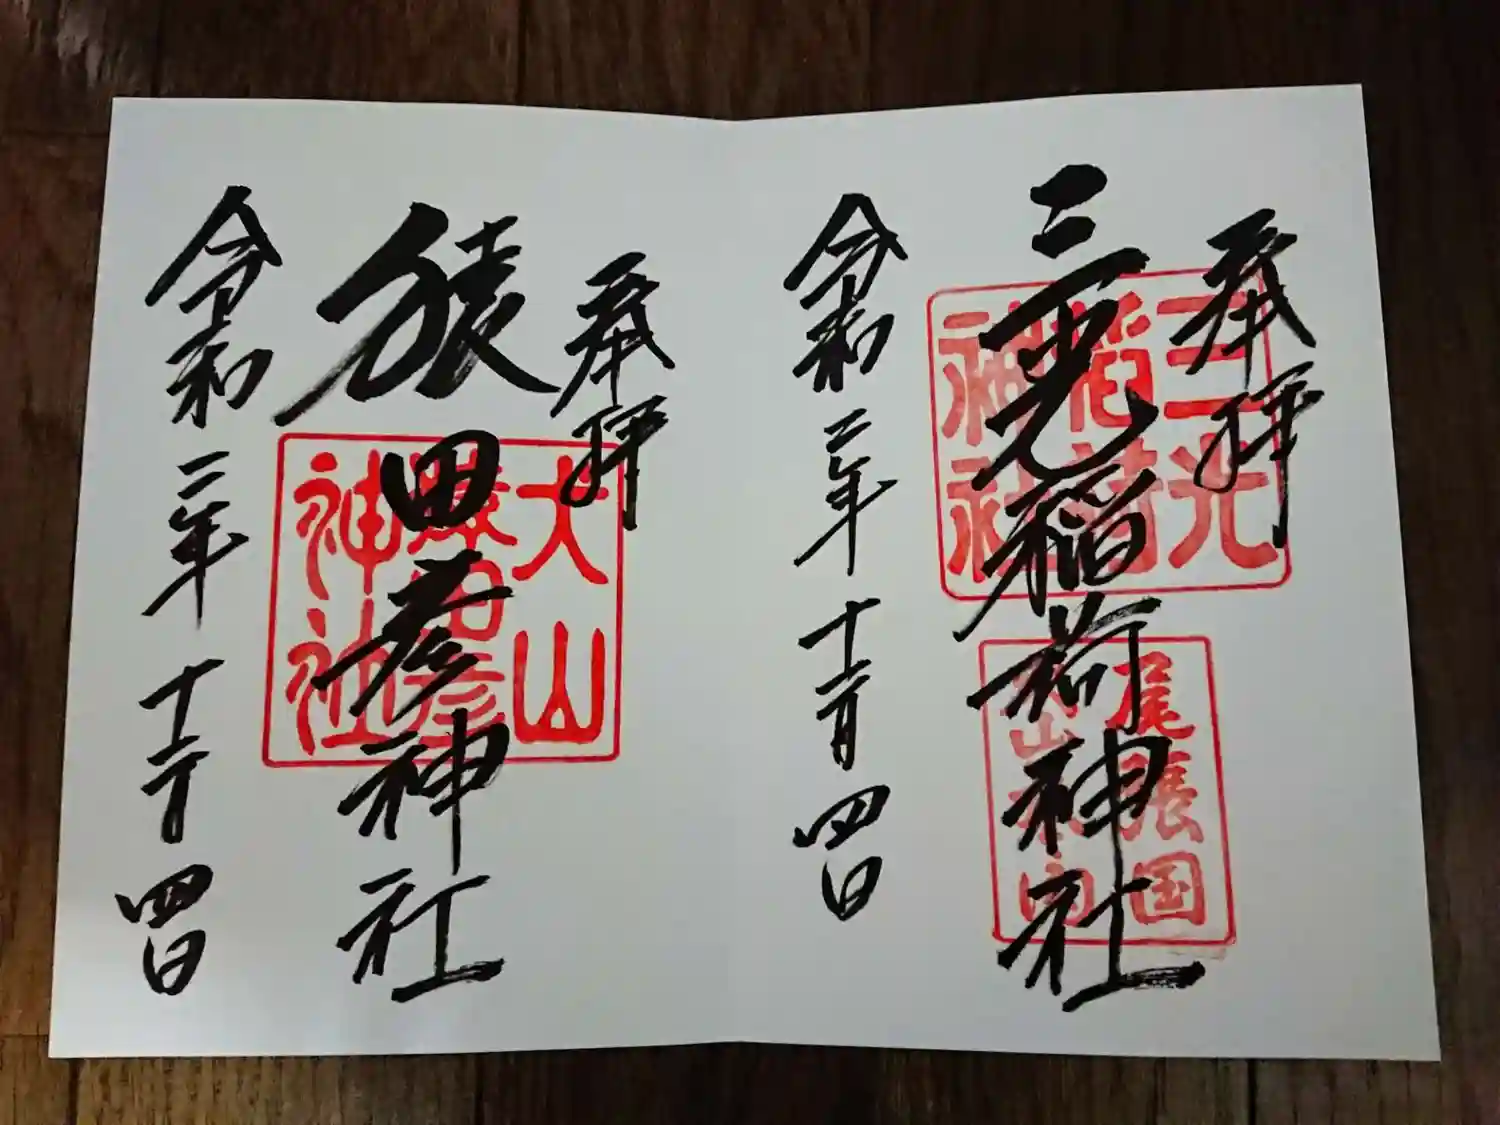 奉拝
三光稲荷神社
令和二年十二月四日
三光
稲荷
神社
尾張国
犬山城内
奉拝
猿田彦神社
令和二年十二月四日
犬山
猿田彦
神社